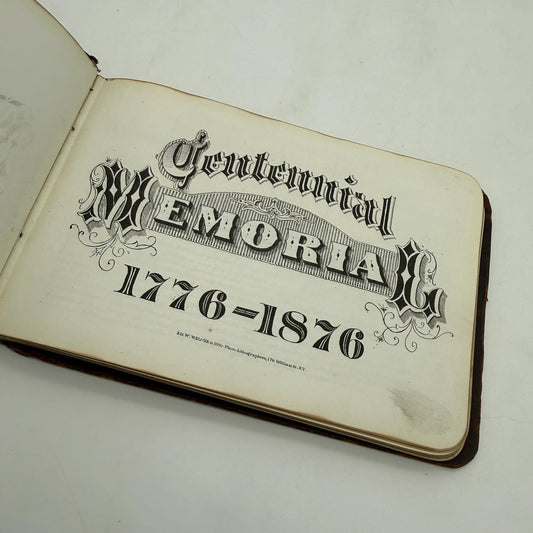 Centennial
MEMORIAL
1776-1876
Photo-Lithographers, 176 William St. N.Y.